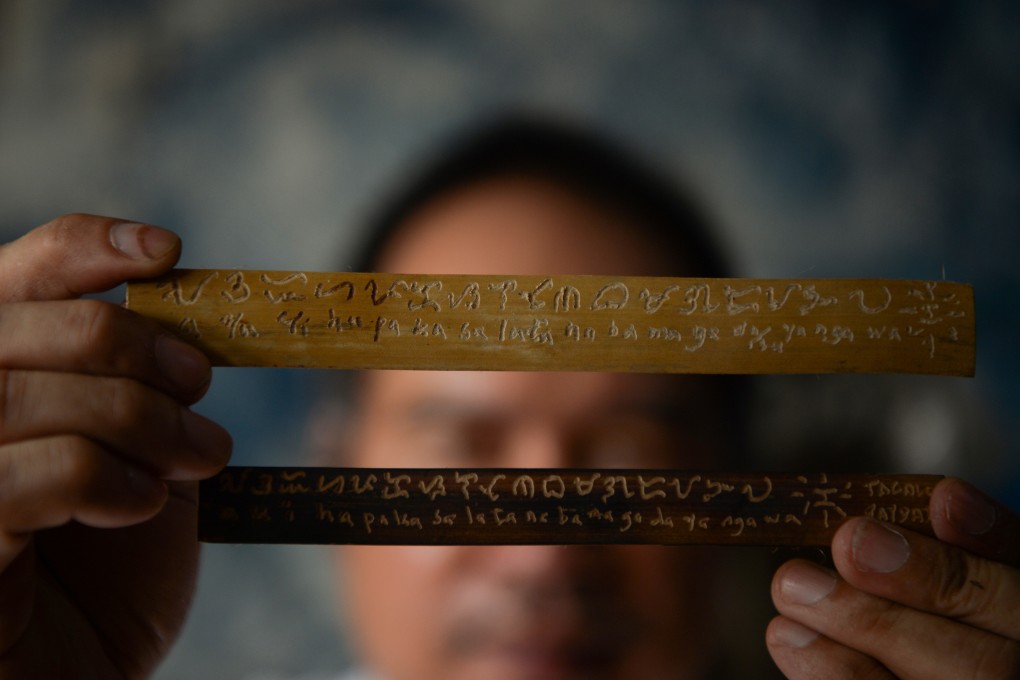 ᜀ ᜂ ᜁ ᜑ ᜉ ᜃ ᜐ ᜎ ᜆ ᜈ ᜊ ᜋ ᜄ ᜇ ᜌ ᜅ ᜏ
a ha pa ka sa la ta na ba ma ga da ya nga wa
ᜀ ᜂ ᜁ ᜑ ᜉ ᜃ ᜐ ᜎ ᜆ ᜈ ᜊ ᜋ ᜄ ᜇ ᜌ ᜅ ᜏ
a u i ha pa ka sa la ta na ba ma ga da ya nga wa